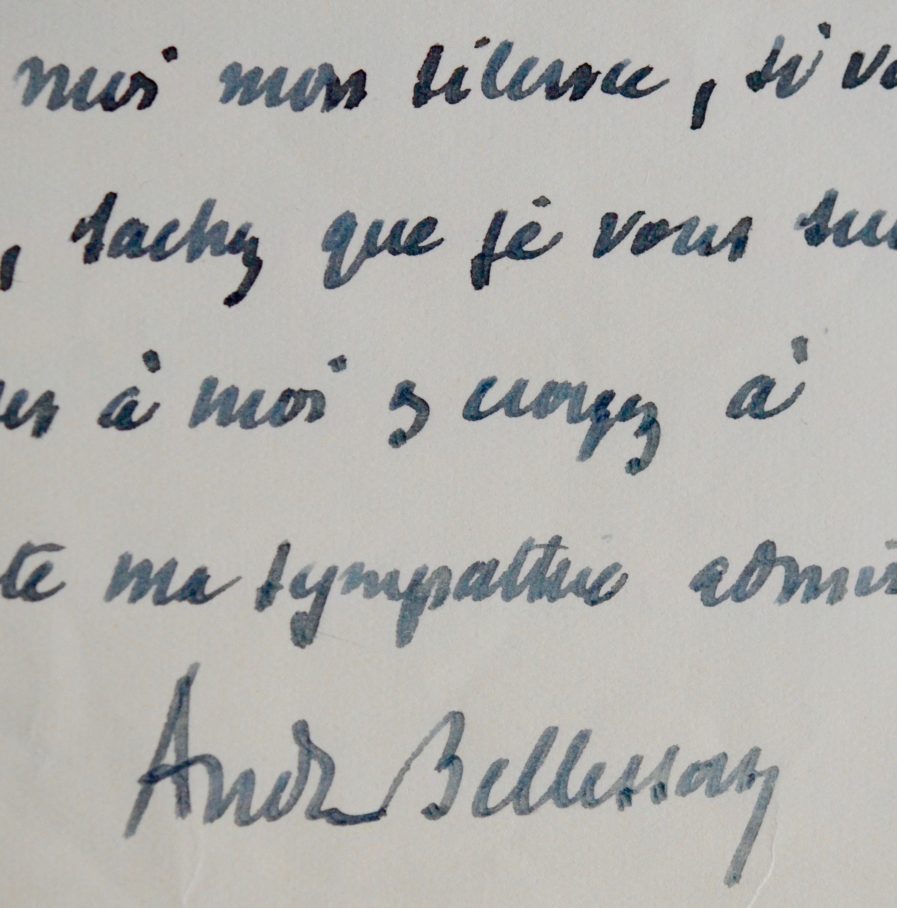 moi mon silence, si vo
, sachez que je vous sui
à moi & croyez à
te ma sympathie admir
André Bellessort